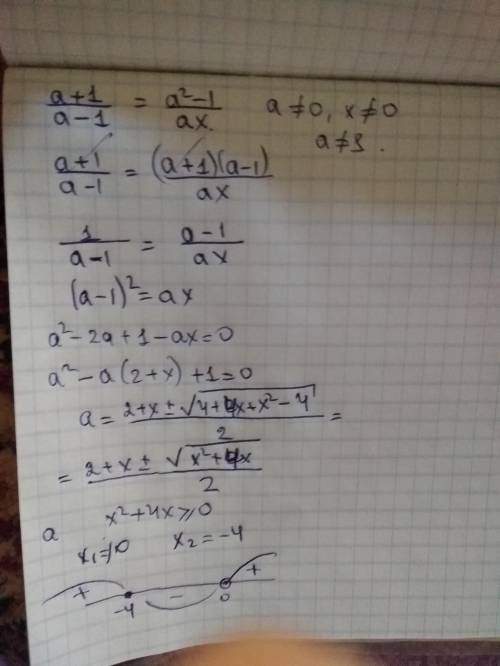 (a+1)/(a−1) = (a²−1)/(ax.) a≠0, x≠0
a≠1.
(a+1)/(a−1) = ((a+1)(a−1))/(ax)
1/(a−1) = (a−1)/(ax)
(a−1)² = ax
a²−2a+1−ax=0
a²−a(2+x)+1=0
a = (2+x±√(4+4x+x²−4))/2 =
= (2+x±√(x²+4x))/2
a x²+4x⩾0
x₁≠0 x₂=−4
+ − +
−4 0